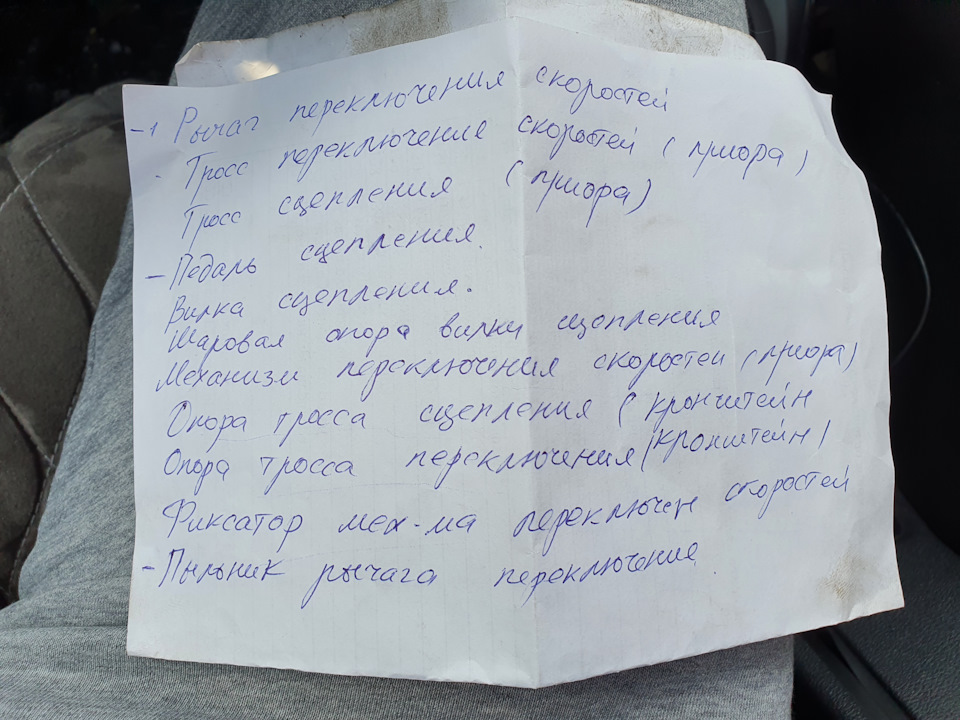 -1 Рычаг переключения скоростей
- Тросс переключение скоростей (приора)
Тросс сцепления (приора)
- Педаль сцепления.
Вилка сцепления.
Шаровая опора вилки сцепления
Механизм переключения скоростей (приора)
Опора тросса сцепления (кронштейн
Опора тросса переключения (кронштейн)
Фиксатор мех-ма переключен скоростей
- Пыльник рычага переключения